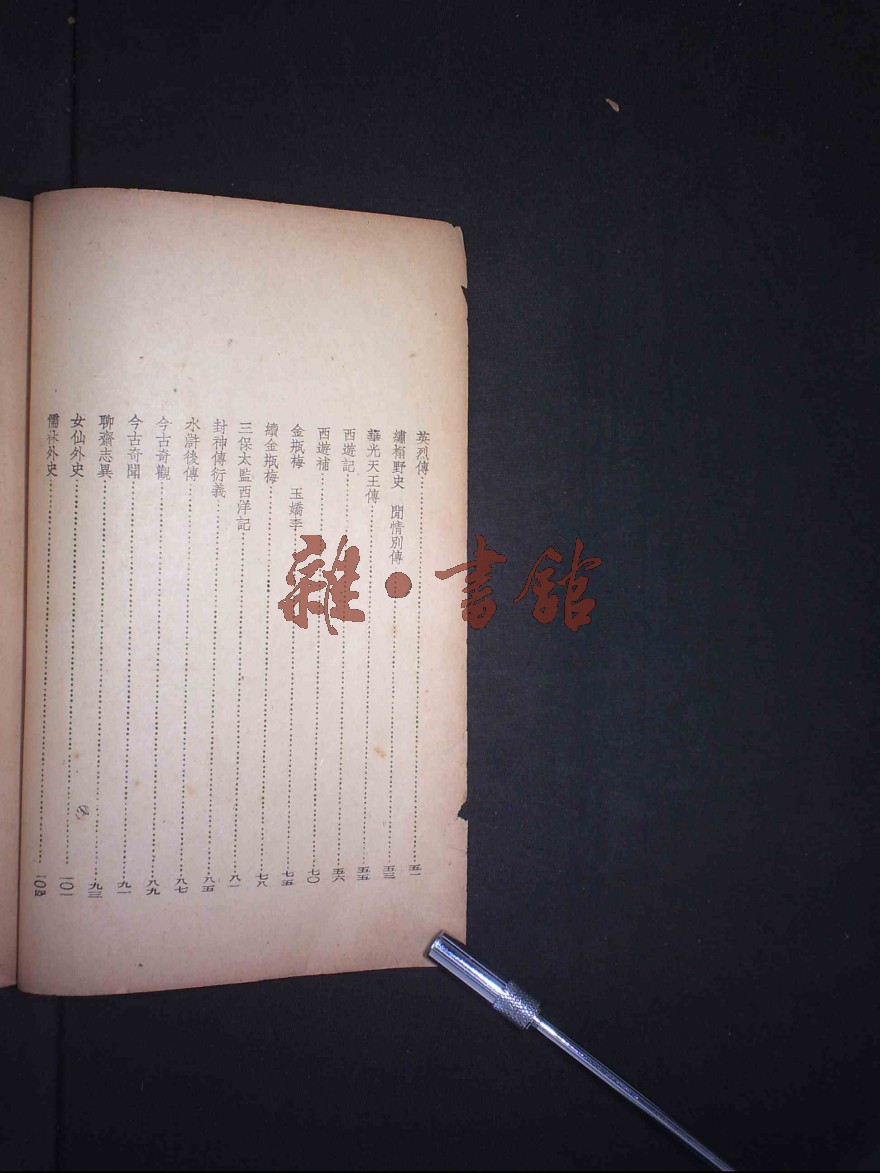 英烈傳……五一
繡榻野史　閒情別傳……五三
華光天王傳……五五
西遊記……五六
西遊補……七〇
金瓶梅　玉嬌李……七五
續金瓶梅……七八
三保太監西洋記……八一
封神傳衍義……八五
水滸後傳……八七
今古奇觀……八九
今古奇聞……九一
聊齋志異……九三
女仙外史……一〇一
儒林外史……一〇四
雜·書館